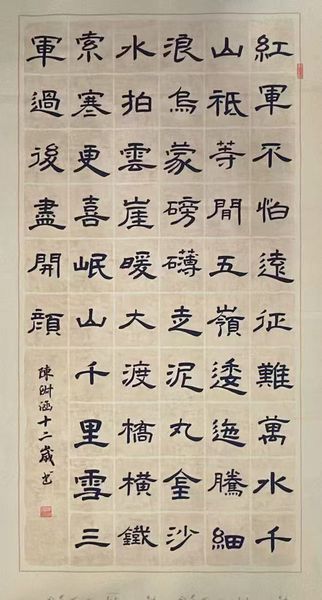 紅軍不怕遠征難萬水千
山祇等閒五嶺逶迤騰細
浪烏蒙磅礴走泥丸金沙
水拍雲崖暖大渡橋橫鐵
索寒更喜岷山千里雪三
軍過後盡開顏
陳涵十二歲書